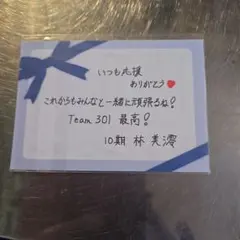 いつも応援
ありがとう❤
これからもみんなと一緒に頑張るね!
Team 301 最高!
10期 林 美澪